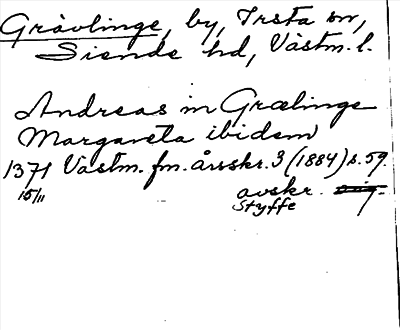 Grävlinge, by, Irsta sn,
Siende hd, Västm. l.
Andreas in Grælinge
Margareta ibidem
1371 Västm. fm. årsskr. 3 (1884) s. 59.
15/11 avskr. orig.
Styffe